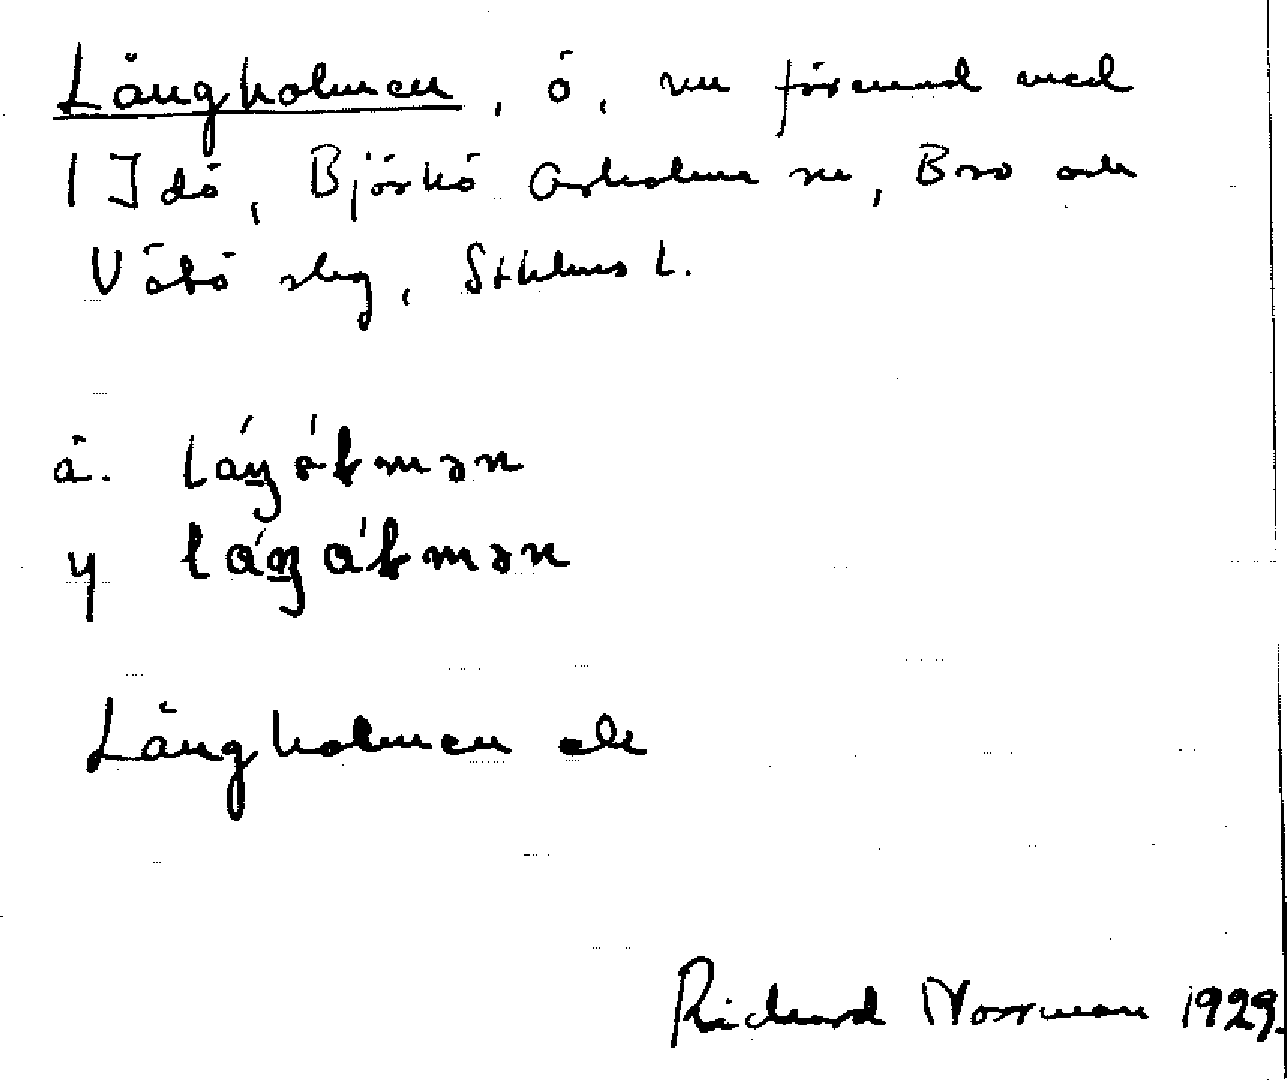 Långholmen, ö, nu förenad med
1 Idö, Björkö Arholma sn, Bro och
Vätö slg, Sthlms l.
ä. láŋ̲ólmən
y láŋ̲álmən
Långholmen ek
Richard Norrman 1929.